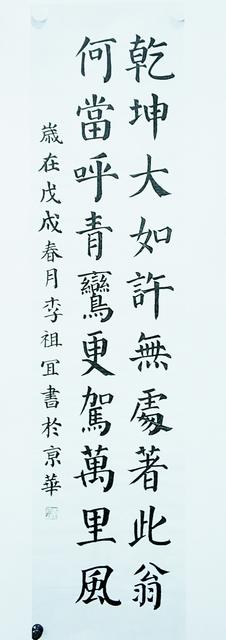 乾坤大如許無處著此翁
何當呼青鸞更駕萬里風
歲在戊戌春月李祖宜書於京華